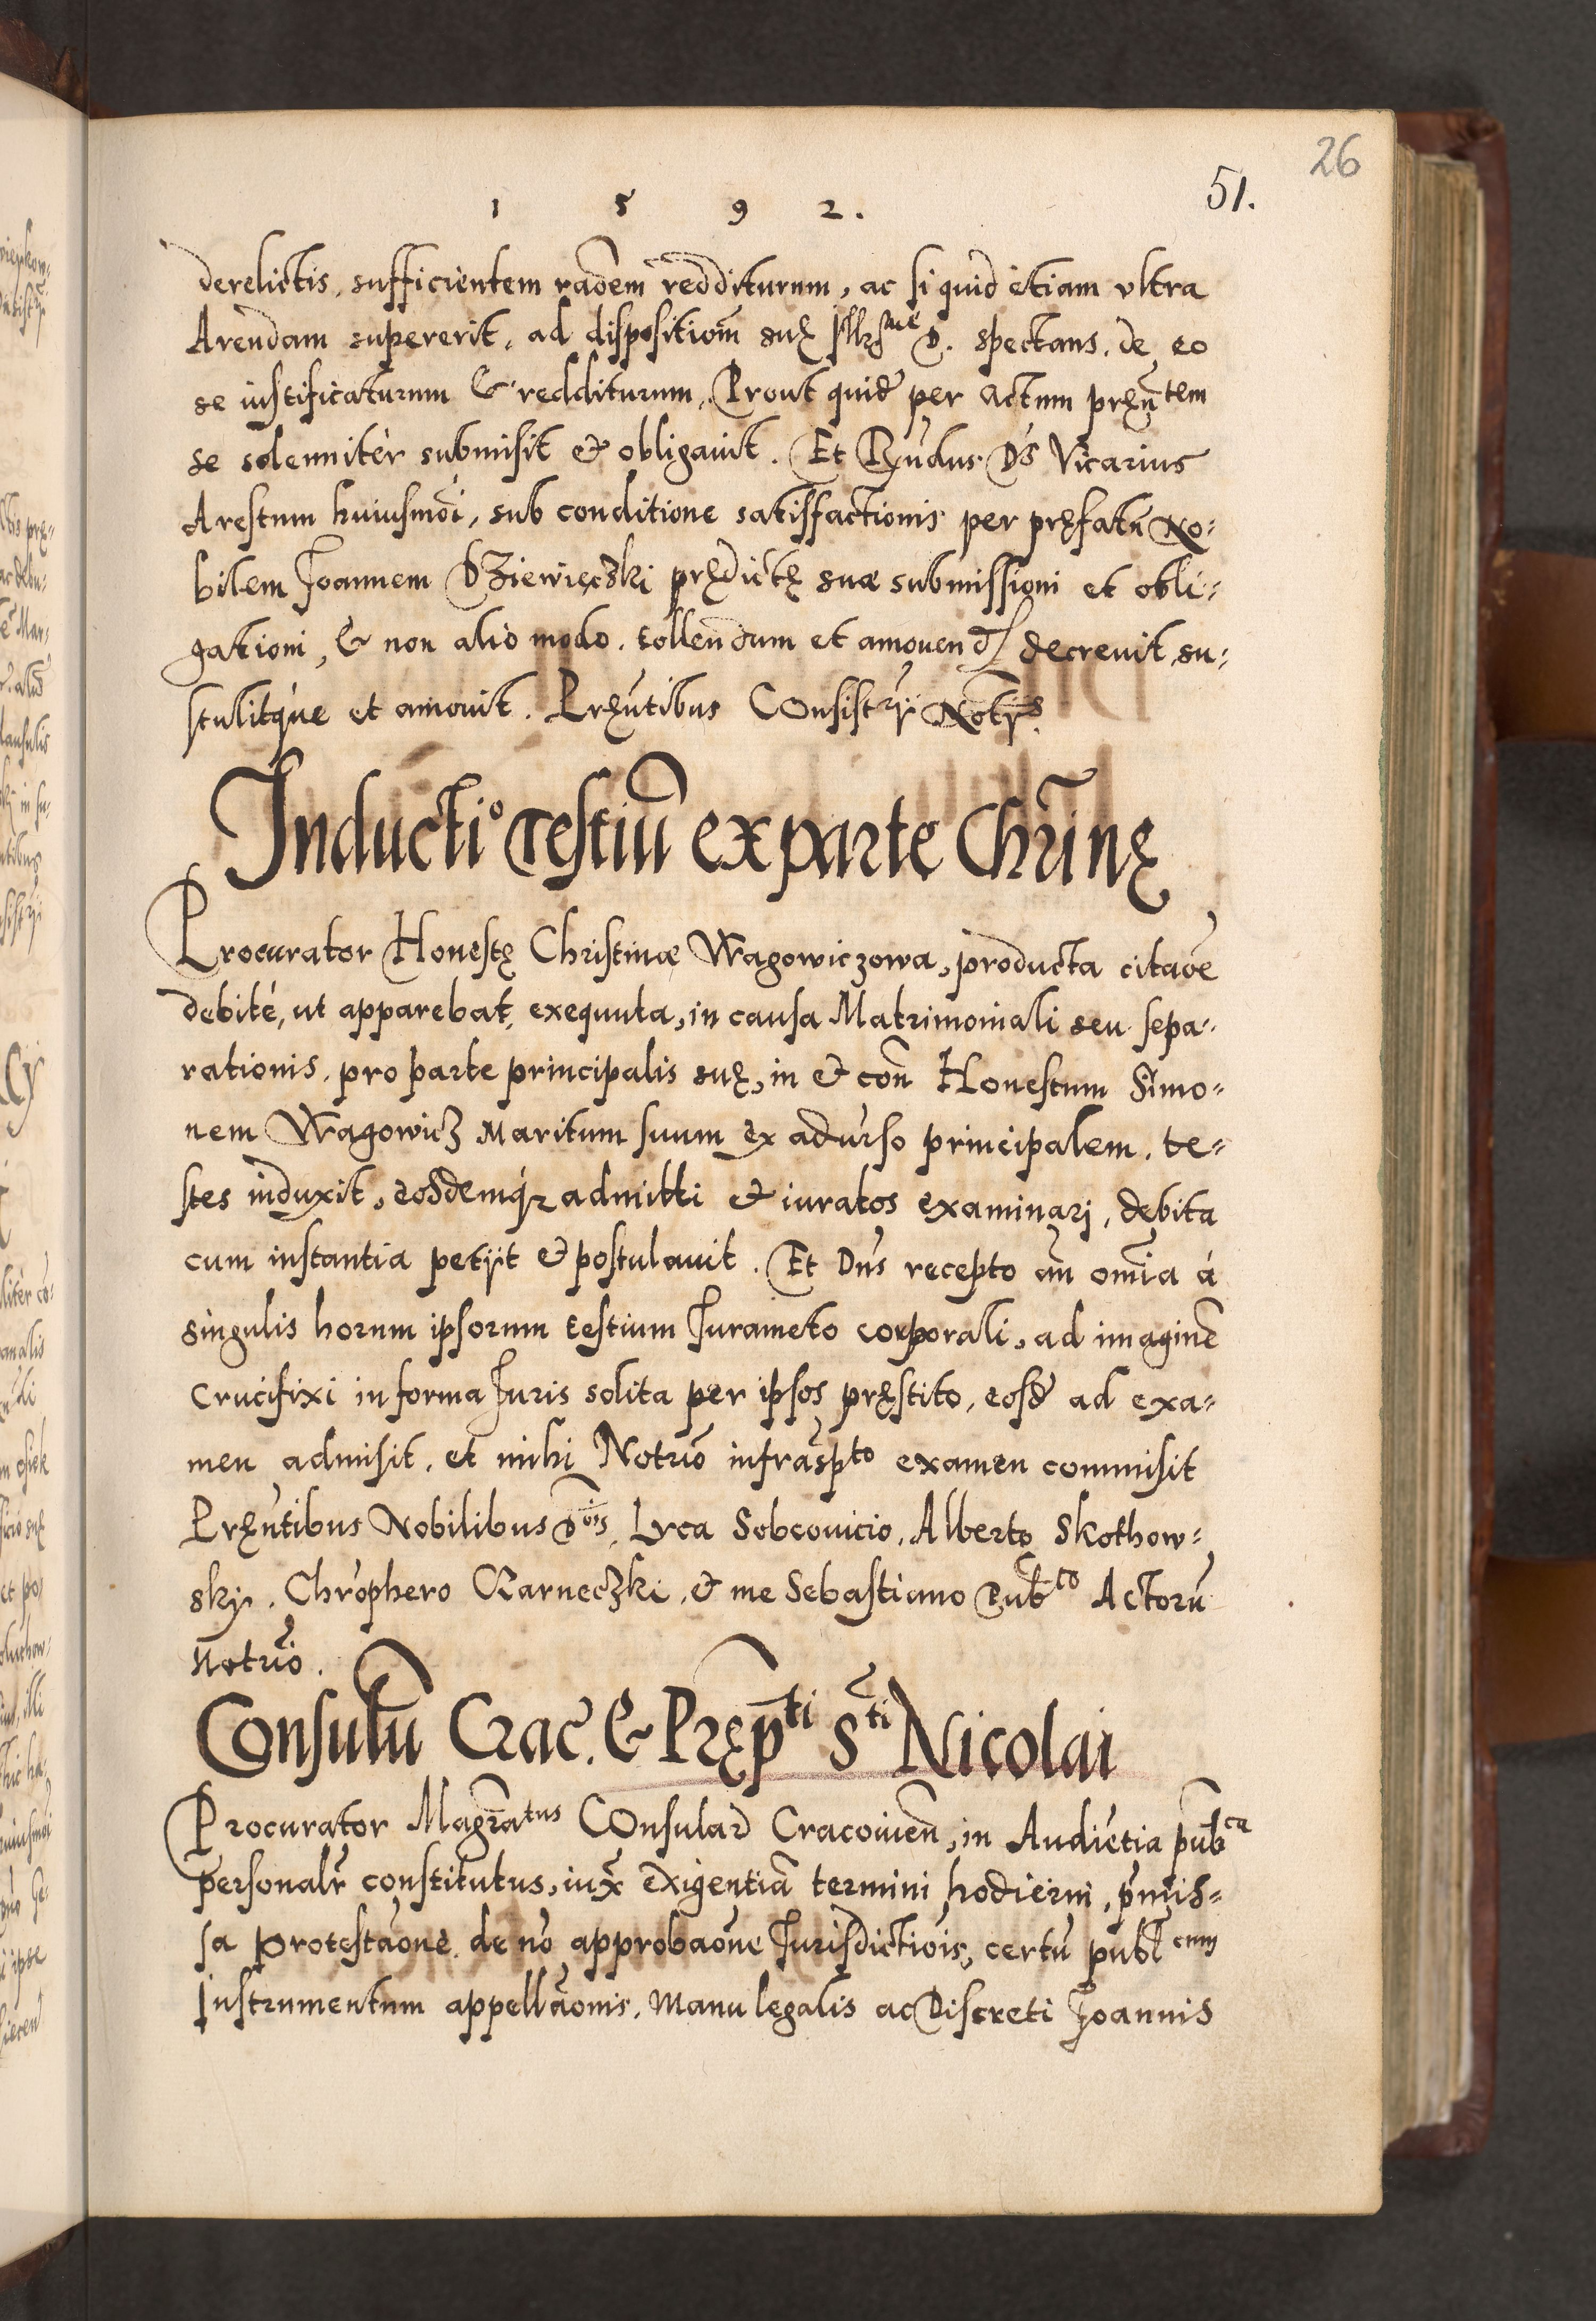 26
51.
1 5 9 2.
derelictis, sufficientem raõem redditurum, ac si quid etiam vltra
Arendam supererit, ad dispositiom̃ suę Illr̃ D. spectans, de eo
se iustificaturum & redditurum, Prout quid̃ per actum pręñtem
se solenniter submisit & obligauit. Et Rñdus Dñs Vicarius
Arestum huiusmõi, sub conditione satisfactionis per pręfatũ No:
bilem Joannem Dziewięczki prędictę suæ submissioni et obli:
gationi, & non alio modo, tollendum et amouend̃ decreuit, su:
stulitque et amouit. Pręñtibus Consistrij Notrijs.
Inductio Testiũ ex parte Chrĩnę
Procurator Honestę Christinæ Wagowiczowa, producta citaõe
debitè, ut apparebat, exequuta, in causa Matrimoniali seu sepa:
rationis, pro parte principalis suę, in & coñ Honestum Simo:
nem Wagowicz Maritum suum ex aduerso principalem, te:
stes induxit, eosdemq́ admitti & iuratos examinarj, debita
cum instantia petijt & postulauit. Et Dñs recepto añ omĩa á
singulis horum ipsorum testium Juramẽto corporali, ad imaginẽ
Crucifixi in forma Juris solita per ipsos pręstito, eosd̃ ad exa:
men admisit, et mihi Notriõ infrasp̃to examen commisit
Pręñtibus Nobilibus Dñis, Lvca Sobcovicio, Alberto Skothow:
skj, Chrõphero Czarneczki, & me Sebastiano Pub̃co Actorũ
Notriõ.
Consulũ Crac̃. & Pręp̃ti Sti Nicolai
Procurator Magrãtus Consular̃ Cracouieñ, in Audiẽtia pub̃ca
personalr̃ constitutus, iux̃ exigentiã termini hodierni, p̃mis:
sa protestaõne, de nõ approbaõne Jurisdictiõis, certũ publ̃cum
Instrumentum appellaõnis, Manu legalis ac Discreti Joannis